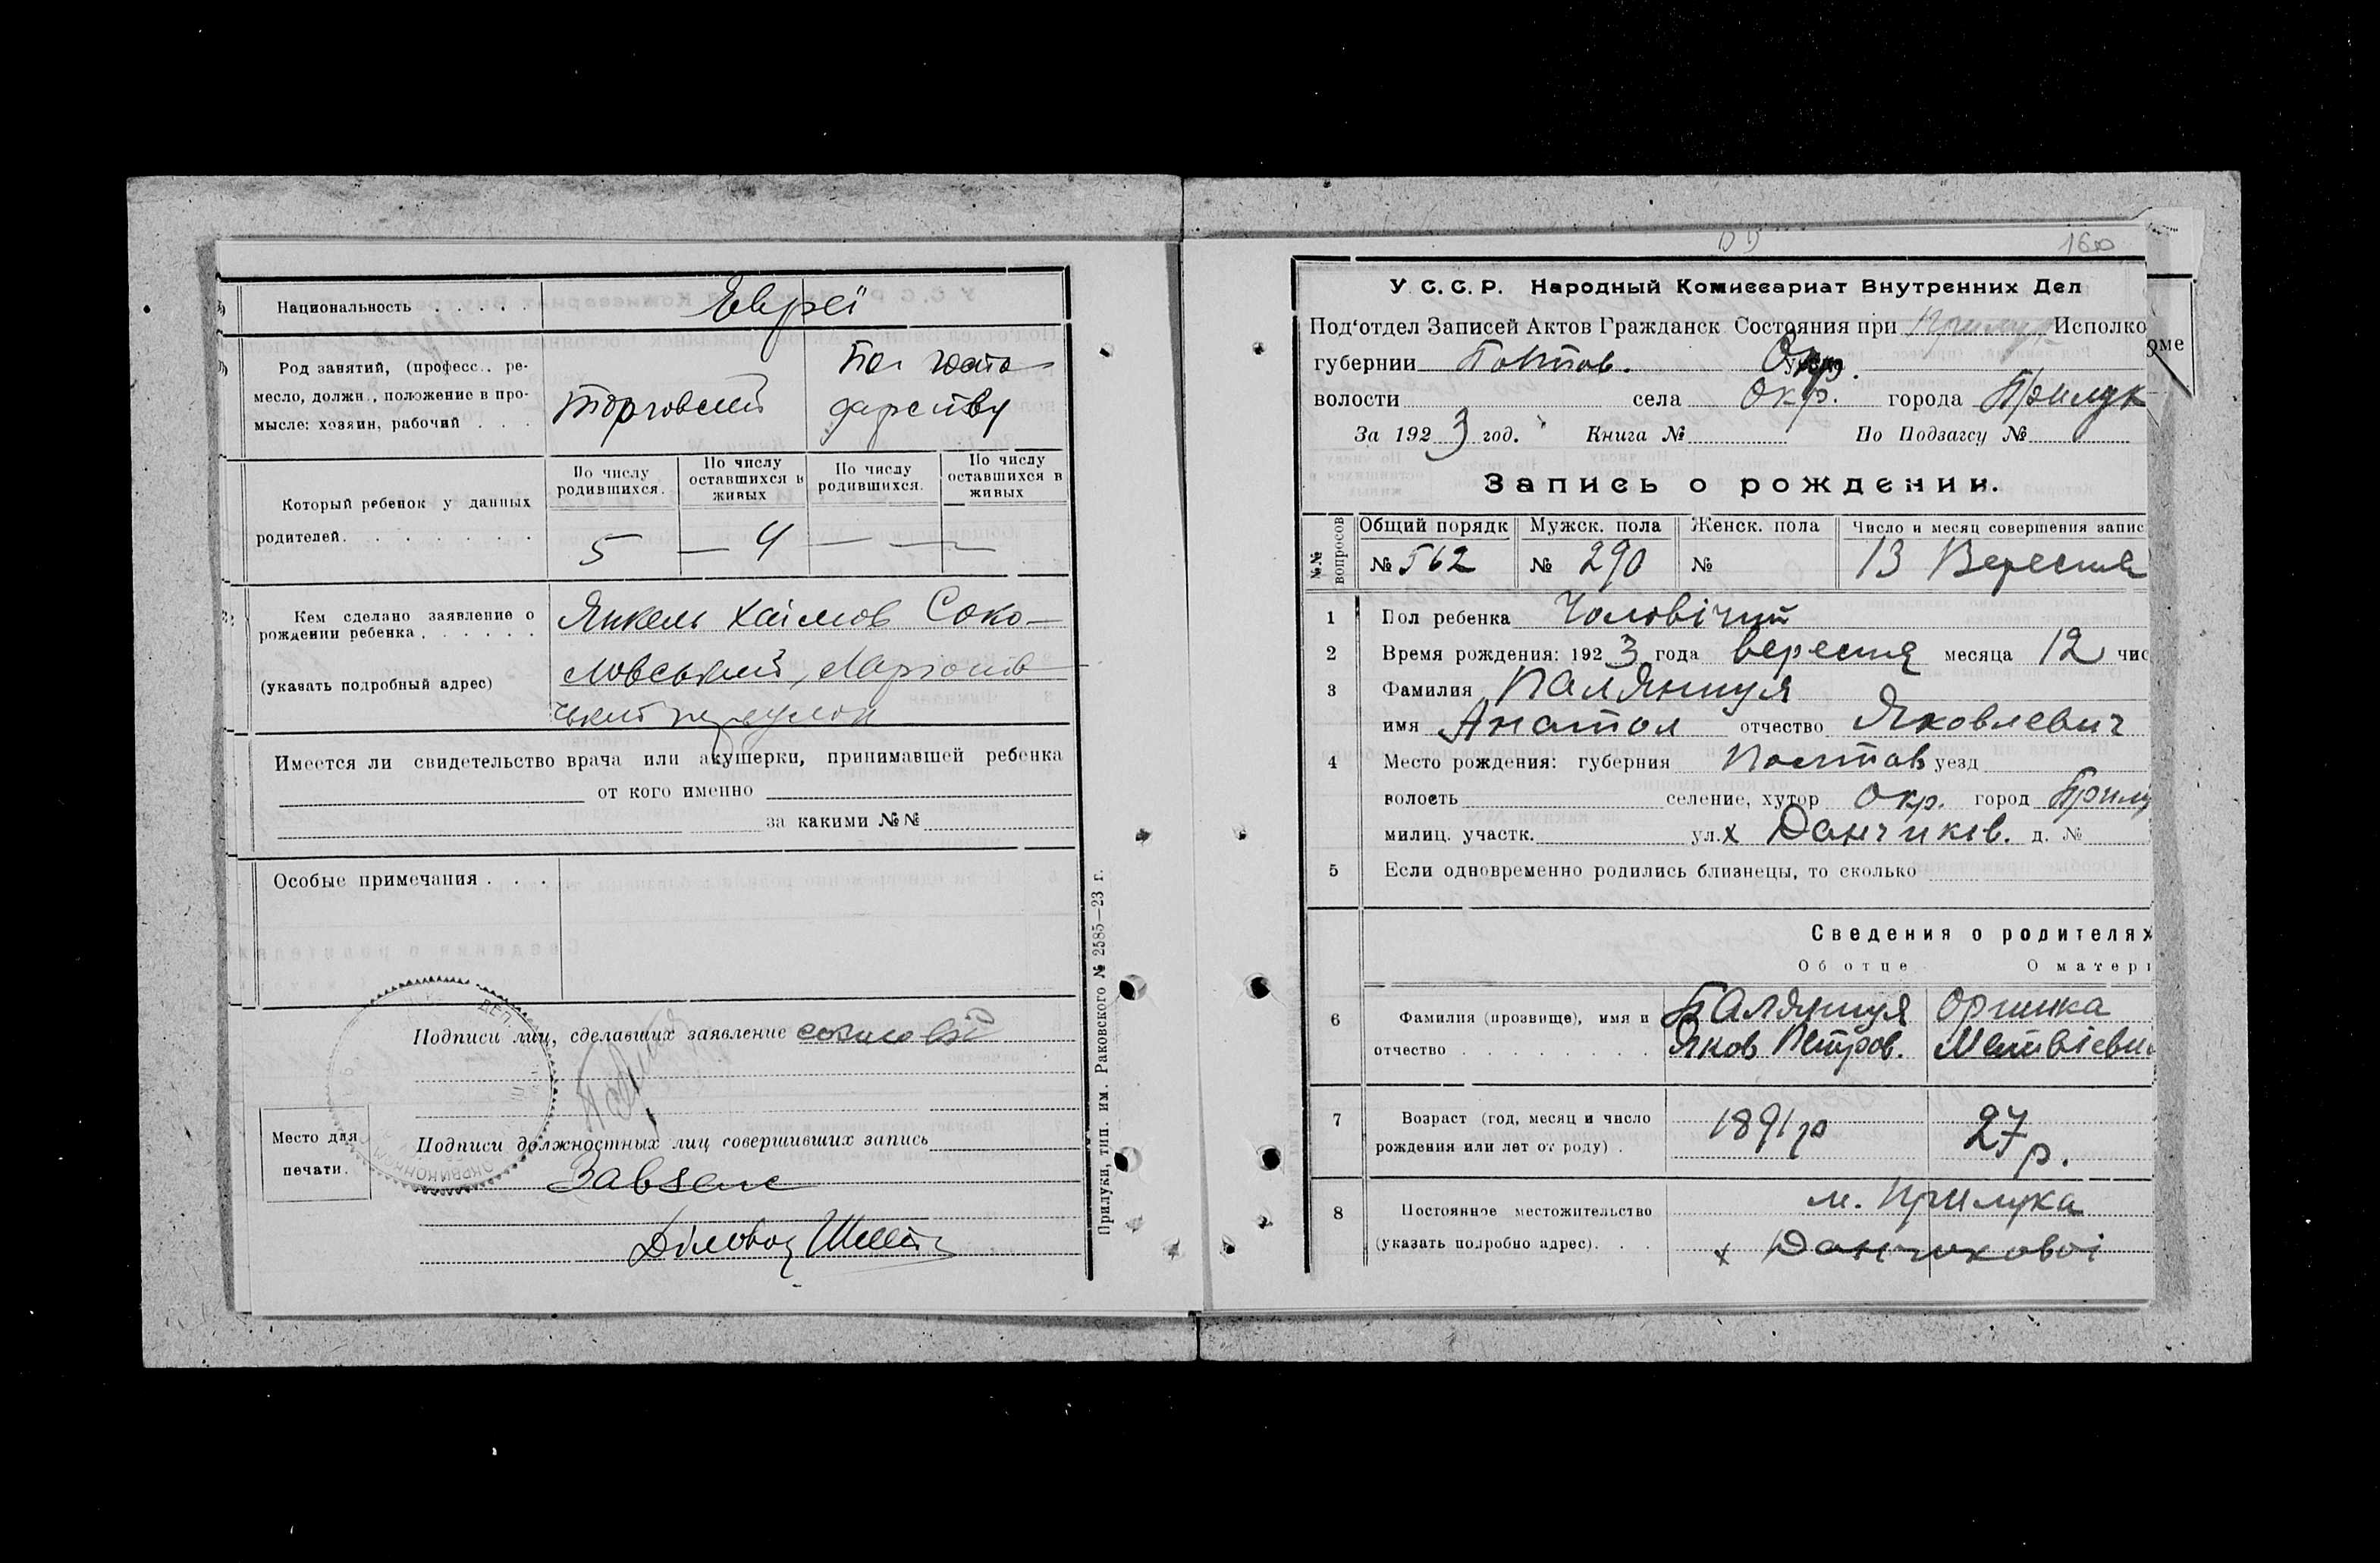 Национальность . . . . . Евреї
Род занятий, (професс., ре-
месло, должн., положение в про-
мысле: хозяин, рабочий . . .
торговець
По госпо-
дарству
Который ребенок у данных
родителей. . . . . . .
По числу родившихся.
По числу оставшихся в живых
По числу родившихся.
По числу оставшихся в живых
5 — 4 — —
Кем сделано заявление о
рождении ребенка . . . . . .
(указать подробный адрес)
Янкель Хаімов Соко-
ловський,
Имеется ли свидетельство врача или акушерки, принимавшей ребенка
от кого именно
за какими №№
Особые примечания . . .
Подписи лиц, сделавших заявление
Место для
печати.
Подписи должностных лиц совершивших запись
Завзагс
Діловод
Прилуки, тип. им. Раковского № 2585—23 г.
160
У С. С. Р. Народный Комиссариат Внутренних Дел
Под‘отдел Записей Актов Гражданск Состояния при Прилук Исполко
оме
губернии Полтав. Окр.
волости села Окр. города Прилук
За 1923 год. Книга № По Подзагсу №
Запись о рождении.
№№ вопросов
Общий порядк № 562
Мужск. пола № 290
Женск. пола №
Число и месяц совершения запис
13 Вересня
1 Пол ребенка Чоловічий
2 Время рождения: 1923 года вересня месяца 12 чис
3 Фамилия Паляниця
имя Анатол отчество Яковлевич
4 Место рождения: губерния Полтав уезд
волость селение, хутор Окр. город Прилу
милиц. участк. ул. х Данчиків. д. №
5 Если одновременно родились близнецы, то сколько
Сведения о родителях
Об отце О матери
6 Фамилия (прозвище), имя и
отчество . . . . . . . .
Паляниця
Яков Петров.
Оришка
Матвієвн
7 Возраст (год, месяц и число
рождения или лет от роду) .
1891 р
27 р.
8 Постоянное местожительство
(указать подробно адрес). . .
м. Прилука
х Данчикової